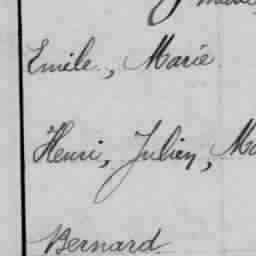 Emile, Marie
Henri, Julien,
Bernard